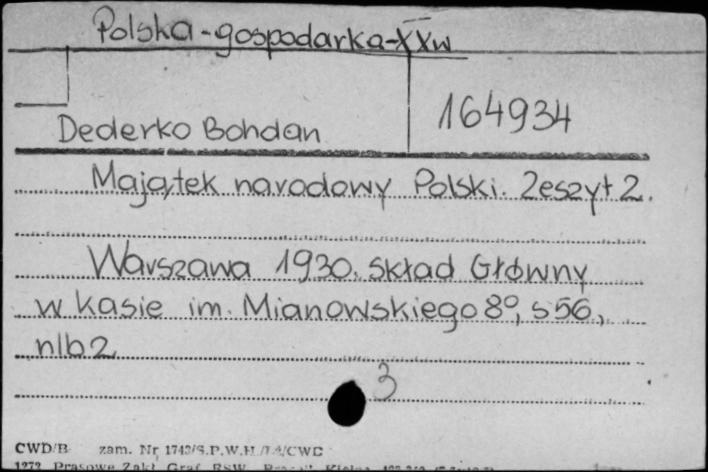 Polska-gospodarka-XXw
Dederko Bohdan
164934
Majątek narodowy Polski. Zeszyt 2.
Warszawa 1930. Skład Główny
w kasie im. Mianowskiego 8°, s 56,
nlb 2
3
CWD/B zam. Nr 1743/S.P.W.H./74/CWD
1272 Prasowe Zakł. Graf. RSW